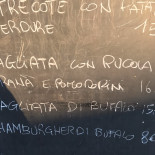 TRECOTE CON PATA
VERDURE 15
AGLIATA CON RUCOLA
RANA E POMODORINI 16
AGLIATA DI BUFALO 15
HAMBURGHER DI BUFALO 8